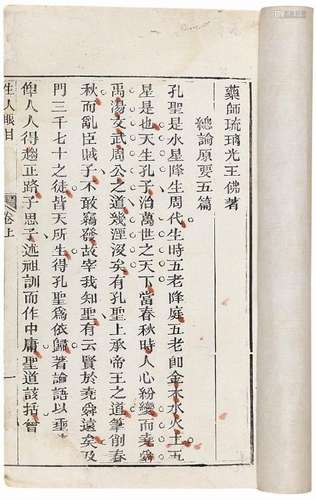 藥師琉璃光王佛著
總論原要五篇
孔聖是水星降生周代生時五老降庭五老卽金木水火土五
星是也天生孔子治萬世之天下當春秋時人心紛變而堯舜
禹湯文武周公之道幾湮沒矣有孔聖上承帝王之道筆削春
秋而亂臣賊子不敢竊發故宰我知聖有云賢於堯舜遠矣及
門三千七十之徒皆天所生得孔聖爲依歸著論語以垂
俾人人得趨正路子思子述祖訓而作中庸聖道該括曾
人眼目 卷上 一